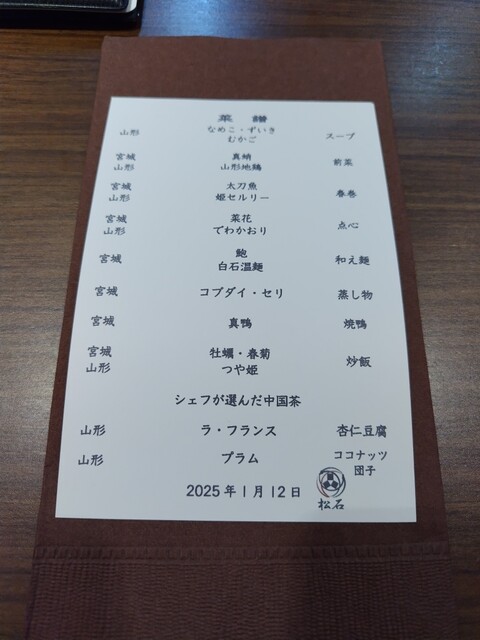 菜 譜
山形 なめこ・ずいき むかご スープ
宮城 山形 真蛸 山形地鶏 前菜
宮城 山形 太刀魚 姫セルリー 春巻
宮城 山形 菜花 でわかおり 点心
宮城 鮑 白石温麺 和え麺
宮城 コブダイ・セリ 蒸し物
宮城 真鴨 焼鴨
宮城 山形 牡蠣・春菊 つや姫 炒飯
シェフが選んだ中国茶
山形 ラ・フランス 杏仁豆腐
山形 プラム ココナッツ 団子
2025年1月12日
松石